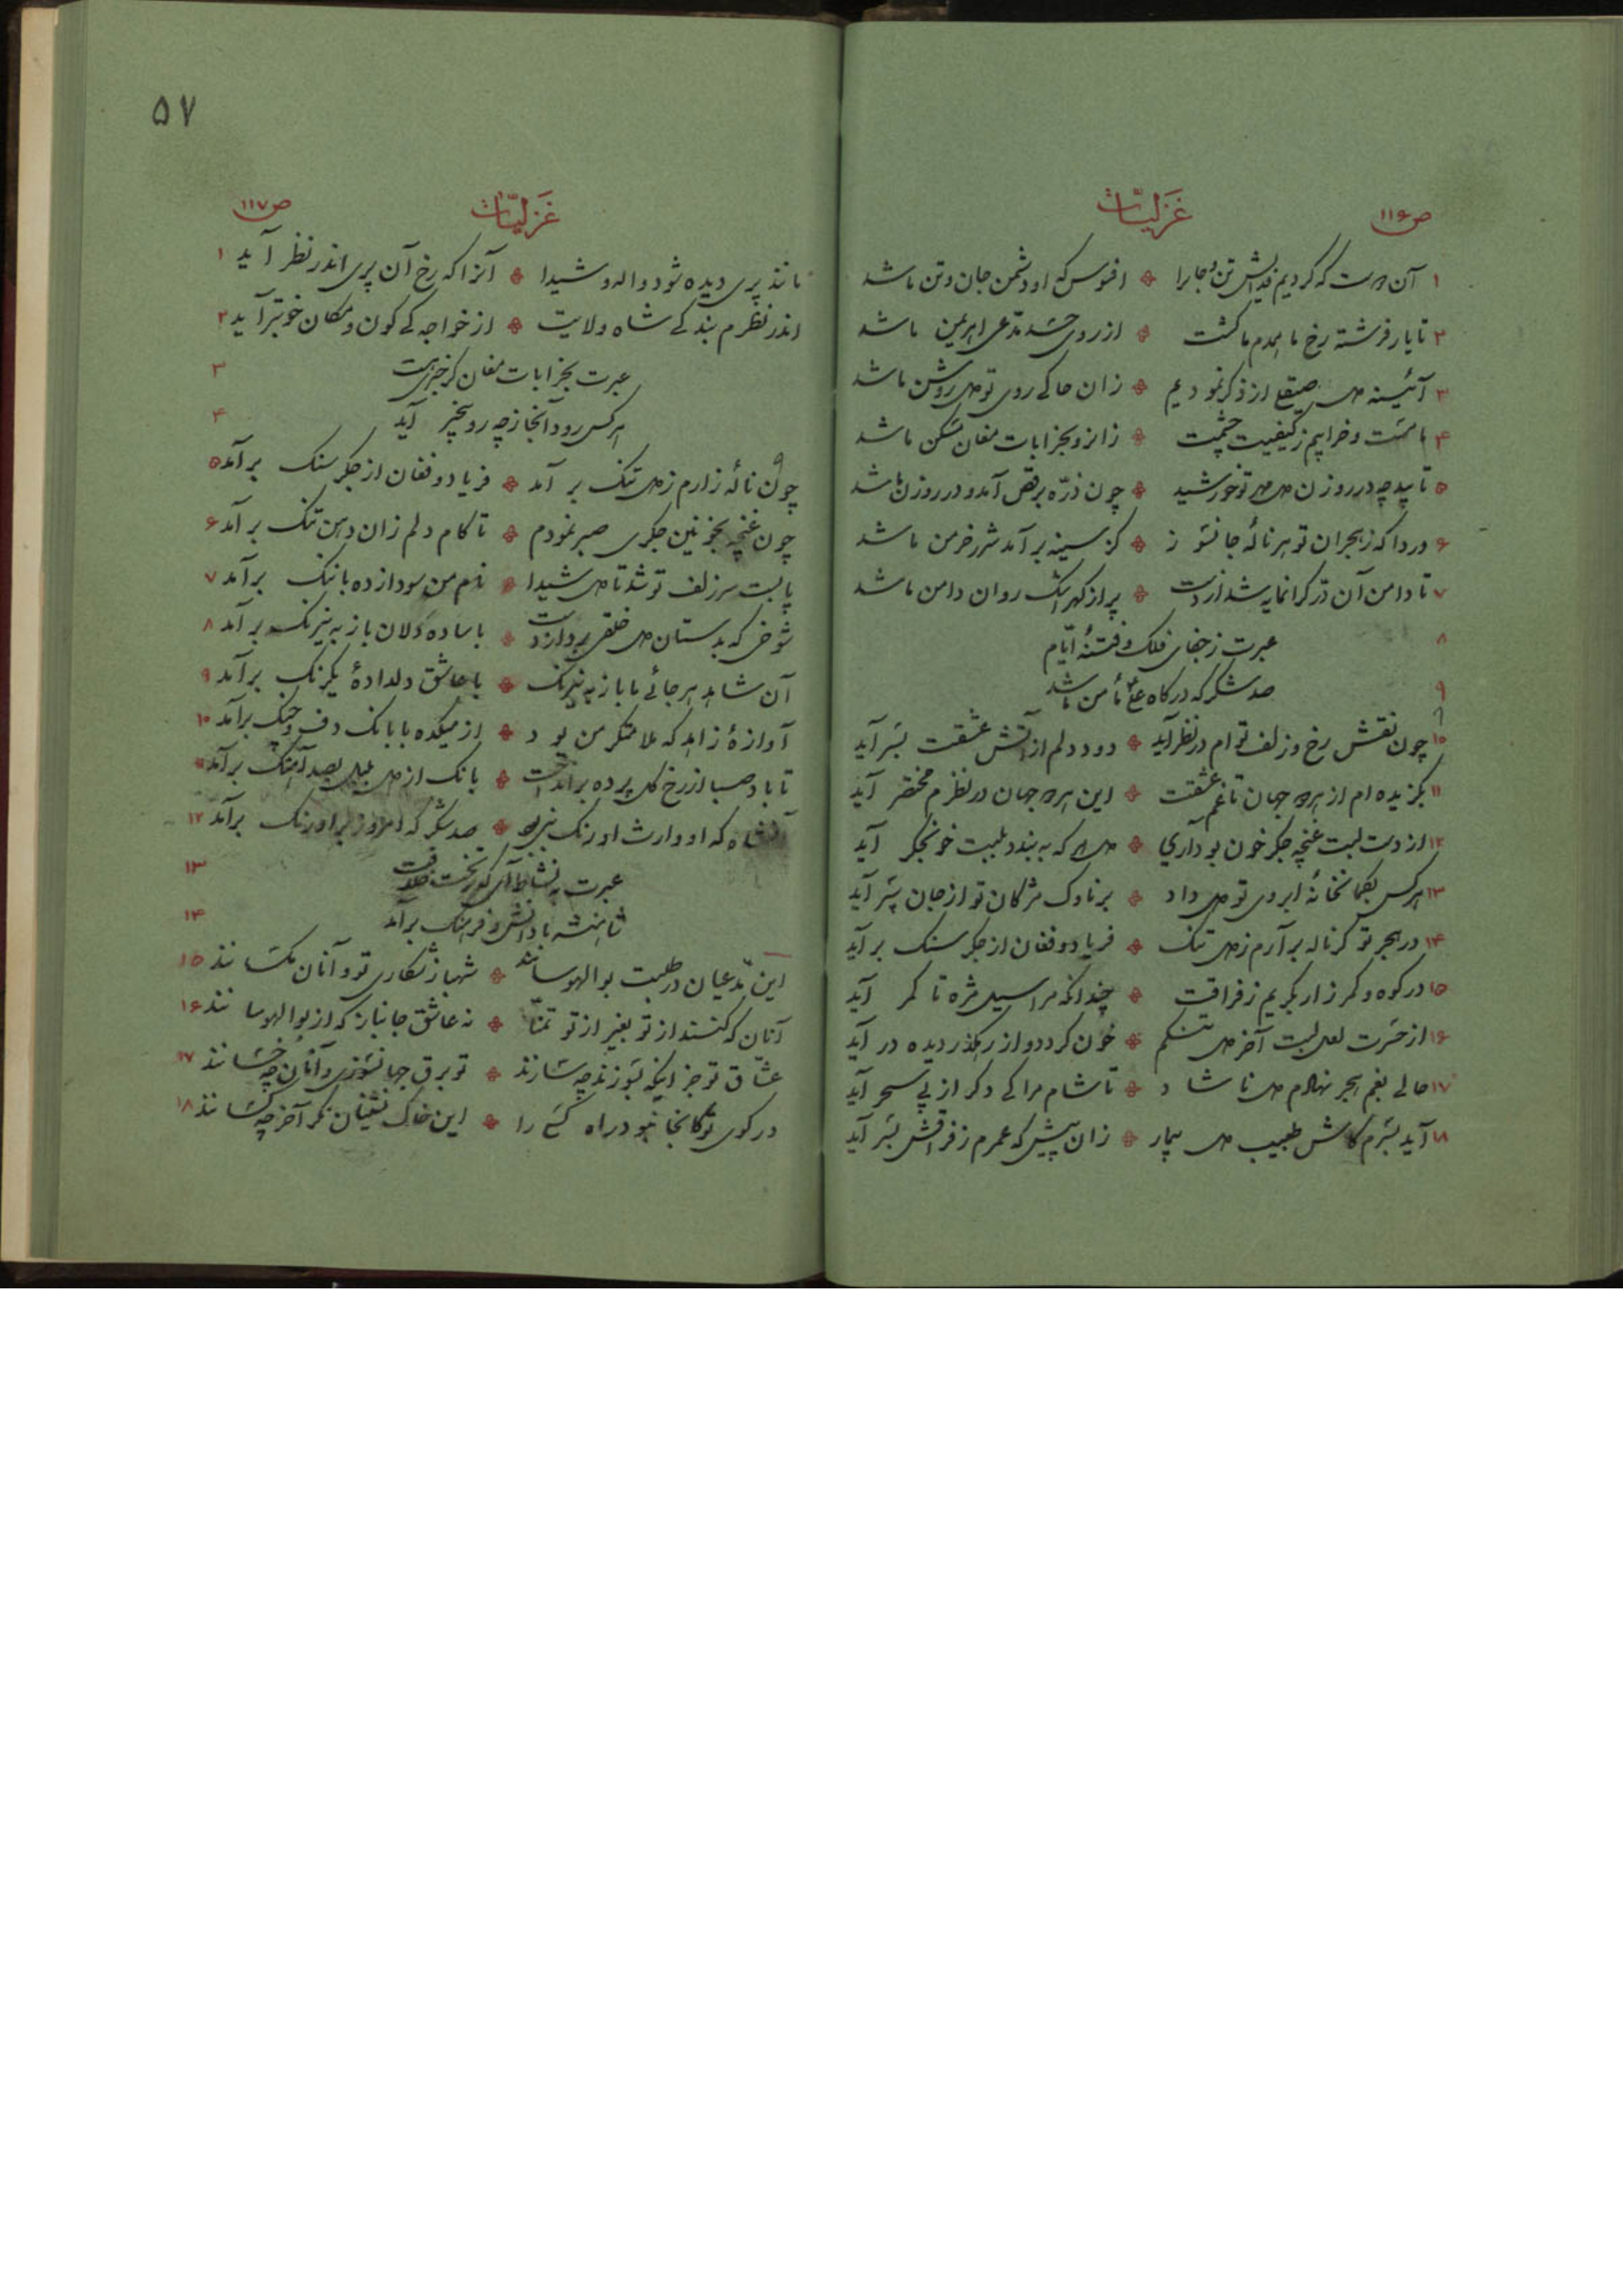 ص ۱۱۶
غزلیّات
۱ آن کردیم فدایش تن و جانرا ❖ افسوس که او دشمن جان و تن ما شد
۲ تا یار فرشته رخ ما همدم ما گشت ❖ از روی حسد مدعی اهریمن ما شد
۳ آئینه دل صیقلی از ذکر نمودیم ❖ زان جایگه روی تو دل روشن ما شد
۴ ما مست و خرابیم ز کیفیت چشمت ❖ زانرو بخرابات مغان مسکن ما شد
۵ تابید چه در روزن دل مهر تو خورشید ❖ چون ذرّه برقص آمد و در روزن ما شد
۶ دردا که ز هجران تو هر نالهٔ جانسوز ❖ کز سینه برآمد شرر خرمن ما شد
۷ تا دامن آن درّ گرانمایه شد از دست ❖ پر از گهر اشک روان دامن ما شد
۸ عبرت ز جفای فلک و فتنهٔ ایّام
۹ صد شکر که درگاه علی مأمن ما شد
۱۰ چون نقش رخ و زلف توام در نظر آید ❖ دود دلم از آتش عشقت بسر آید
۱۱ بگزیده‌ام از هر دو جهان تا غم عشقت ❖ این هر دو جهان در نظرم مختصر آید
۱۲ از دست لبت غنچه جگر خون بود آری ❖ که به بندد بلبت خونجگر آید
۱۳ هرکس بکمانخانهٔ ابروی تو دل داد ❖ بر ناوک مژگان تو از جان سپر آید
۱۴ در هجر تو گر ناله برآرم ز دل تنگ ❖ فریاد و فغان از جگر سنگ برآید
۱۵ در کوه و کمر زار بگریم ز فراقت ❖ چندانکه مرا سیل مژه تا کمر آید
۱۶ از حسرت لعل لبت آخر دل تنگم ❖ خون گردد و از رهگذر دیده در آید
۱۷ حالی بغم هجر نهادم دل ناشاد ❖ تا شام مرا کی دگر از پی سحر آید
۱۸ آید بسرم کاش طبیب دل بیمار ❖ زان پیش که عمرم ز فراقش بسر آید
۵۷
ص ۱۱۷
غزلیّات
مانند پری دیده شود واله و شیدا ❖ آنرا که رخ آن پری اندر نظر آید ۱
اندر نظرم بندگی شاه ولایت ❖ از خواجگی کون و مکان خوبتر آید ۲
عبرت بخرابات مغان گر خبری نیست ۳
هرکس رود آنجا ز چه رو بیخبر آید ۴
چون نالهٔ زارم ز دل تنگ برآمد ❖ فریاد و فغان از جگر سنگ برآمد ۵
چون غنچه بخونین جگری صبر نمودم ❖ تا کام دلم زان دهن تنگ برآمد ۶
پابست سر زلف تو شد تا دل شیدا ❖ نام من سودازده با ننگ برآمد ۷
شوخی که بدستان دل خلقی برد از دست ❖ با ساده دلان باز به نیرنگ برآمد ۸
آن شاهد هرجائی ما باز به نیرنگ ❖ با عاشق دلدادهٔ یکرنگ برآمد ۹
آوازهٔ زاهد که ملامتگر من بود ❖ از میکده با بانگ دف و چنگ برآمد ۱۰
تا باد صبا از رخ گل پرده برانداخت ❖ بانگ از دل بلبل بصد آهنگ برآمد ۱۱
که او وارث اورنگ ❖ صد شکر که امروز بر اورنگ برآمد ۱۲
عبرت به نشاط آی که بر تخت خلافت ۱۳
شاهنشه با دانش و فرهنگ برآمد ۱۴
این مدّعیان در طلبت بوالهوسانند ❖ شهباز شکاری تو و آنان مگسانند ۱۵
آنان که کنند از تو بغیر از تو تمنّا ❖ نه عاشق جانباز که از بوالهوسانند ۱۶
عشّاق تو جز اینکه بسوزند چه سازند ❖ تو برق جهانسوزی و آنان چه خسانند ۱۷
در کوی تو کانجا نبود راه کسی را ❖ این خاک نشینان مگر آخر چه کسانند ۱۸